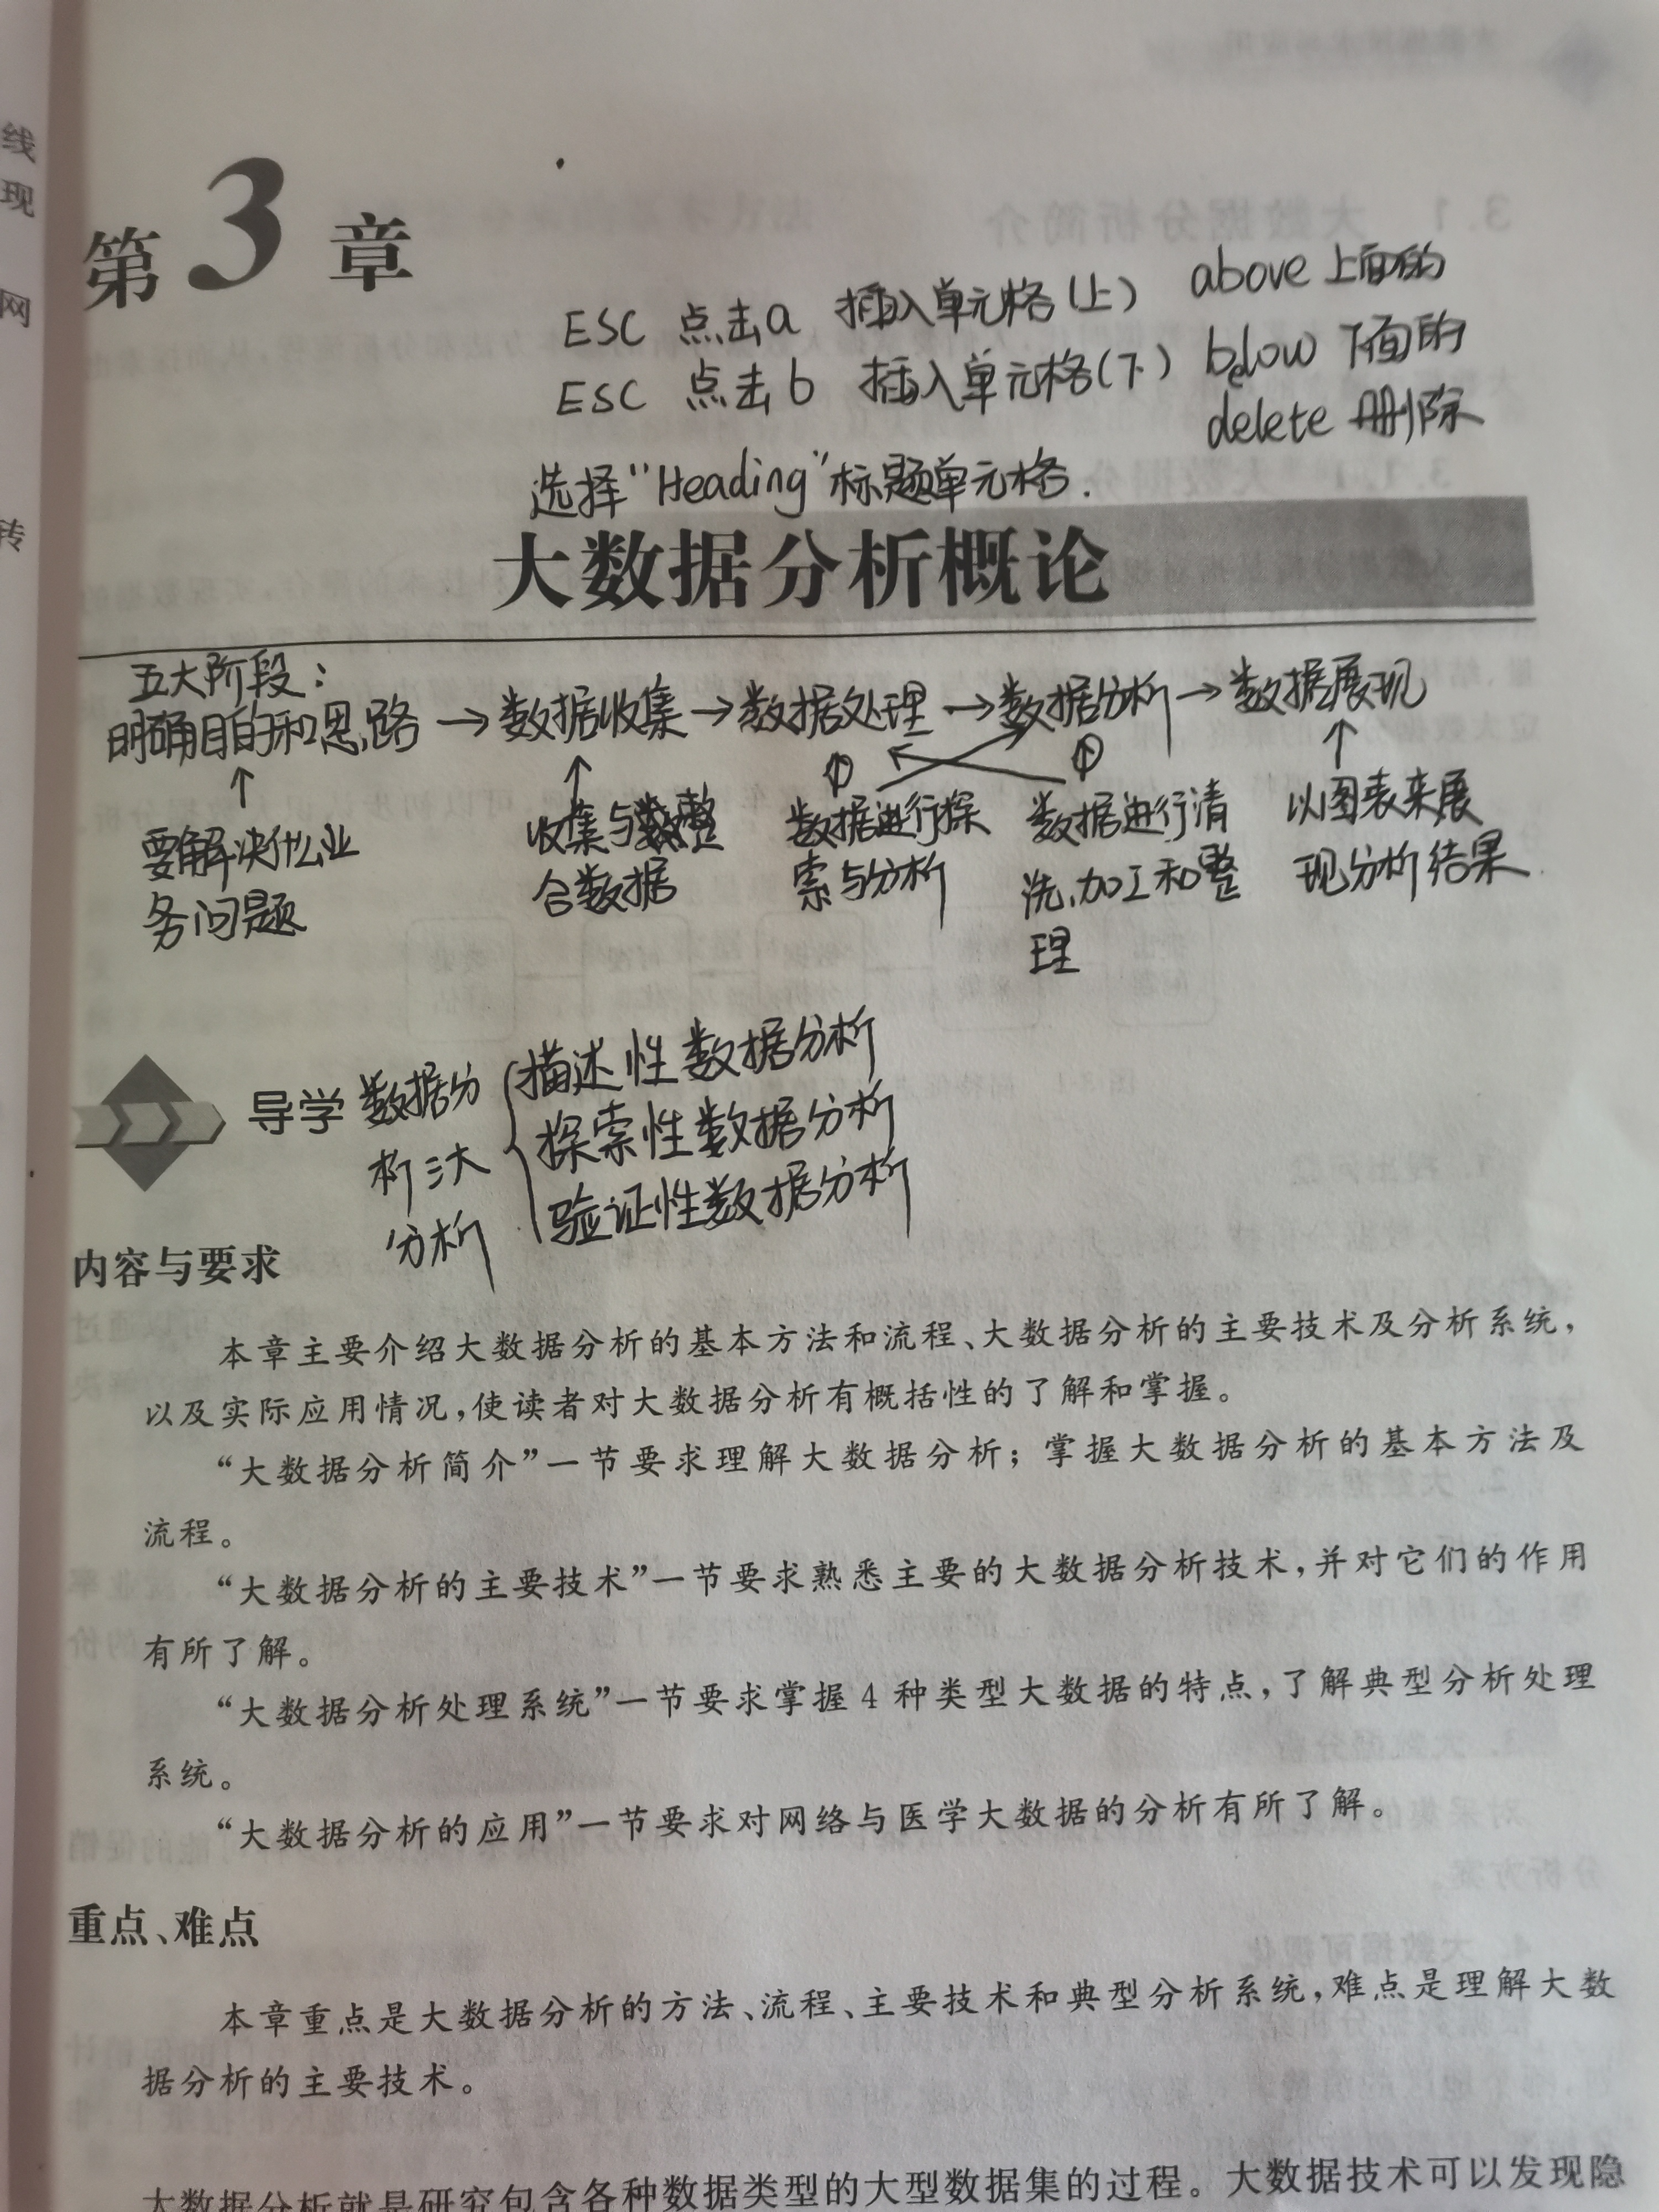 线
现
网
转
第3章
ESC 点击a 插入单元格(上) above 上面的
ESC 点击b 插入单元格(下) below 下面的
delete 删除
选择"Heading"标题单元格.
大数据分析概论
五大阶段:
明确目的和思路→数据收集→数据处理→数据分析→数据展现
要解决什么业务问题
收集与整合数据
数据进行探索与分析
数据进行清洗、加工和整理
以图表来展现分析结果
导学
数据分析三大分析
描述性数据分析
探索性数据分析
验证性数据分析
内容与要求
本章主要介绍大数据分析的基本方法和流程、大数据分析的主要技术及分析系统,
以及实际应用情况,使读者对大数据分析有概括性的了解和掌握。
“大数据分析简介”一节要求理解大数据分析;掌握大数据分析的基本方法及
流程。
“大数据分析的主要技术”一节要求熟悉主要的大数据分析技术,并对它们的作用
有所了解。
“大数据分析处理系统”一节要求掌握4种类型大数据的特点,了解典型分析处理
系统。
“大数据分析的应用”一节要求对网络与医学大数据的分析有所了解。
重点、难点
本章重点是大数据分析的方法、流程、主要技术和典型分析系统,难点是理解大数
据分析的主要技术。
大数据分析就是研究包含各种数据类型的大型数据集的过程。大数据技术可以发现隐